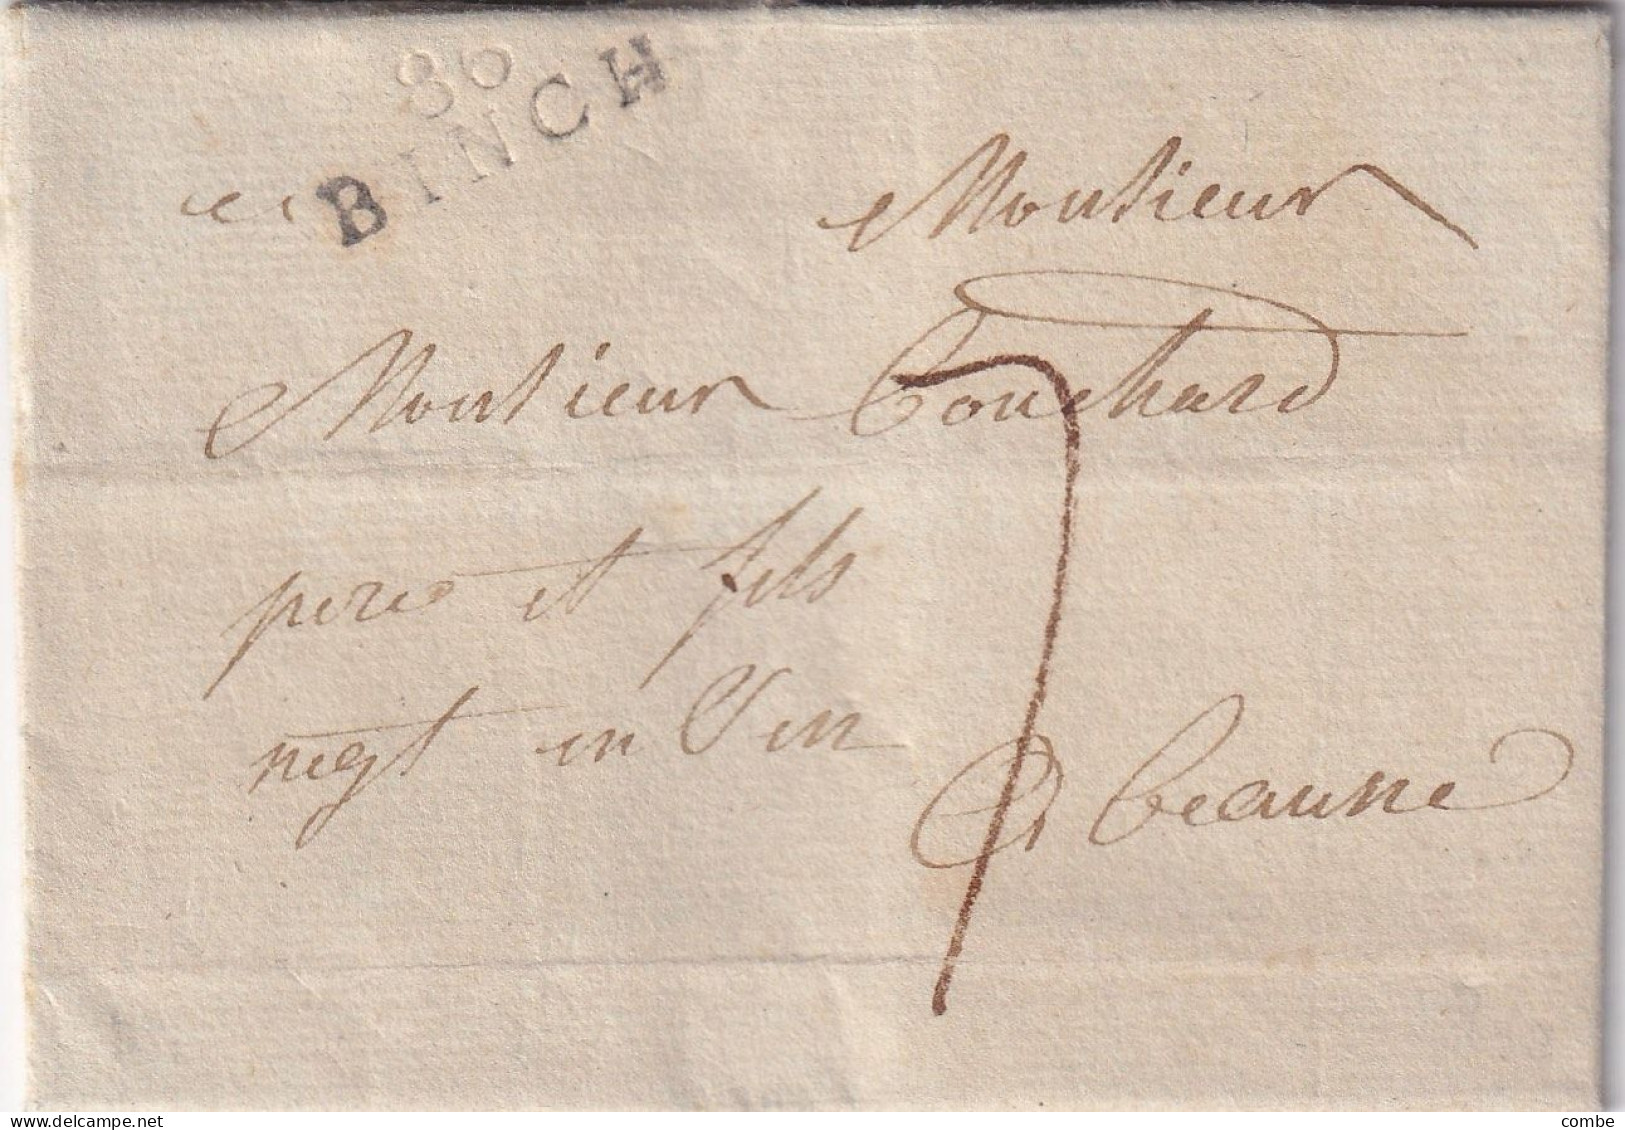 86
BINCH
Monsieur
Monsieur Bouchard
7
pere et fils
negt en Vin
A beaune
delcampe.net
combe